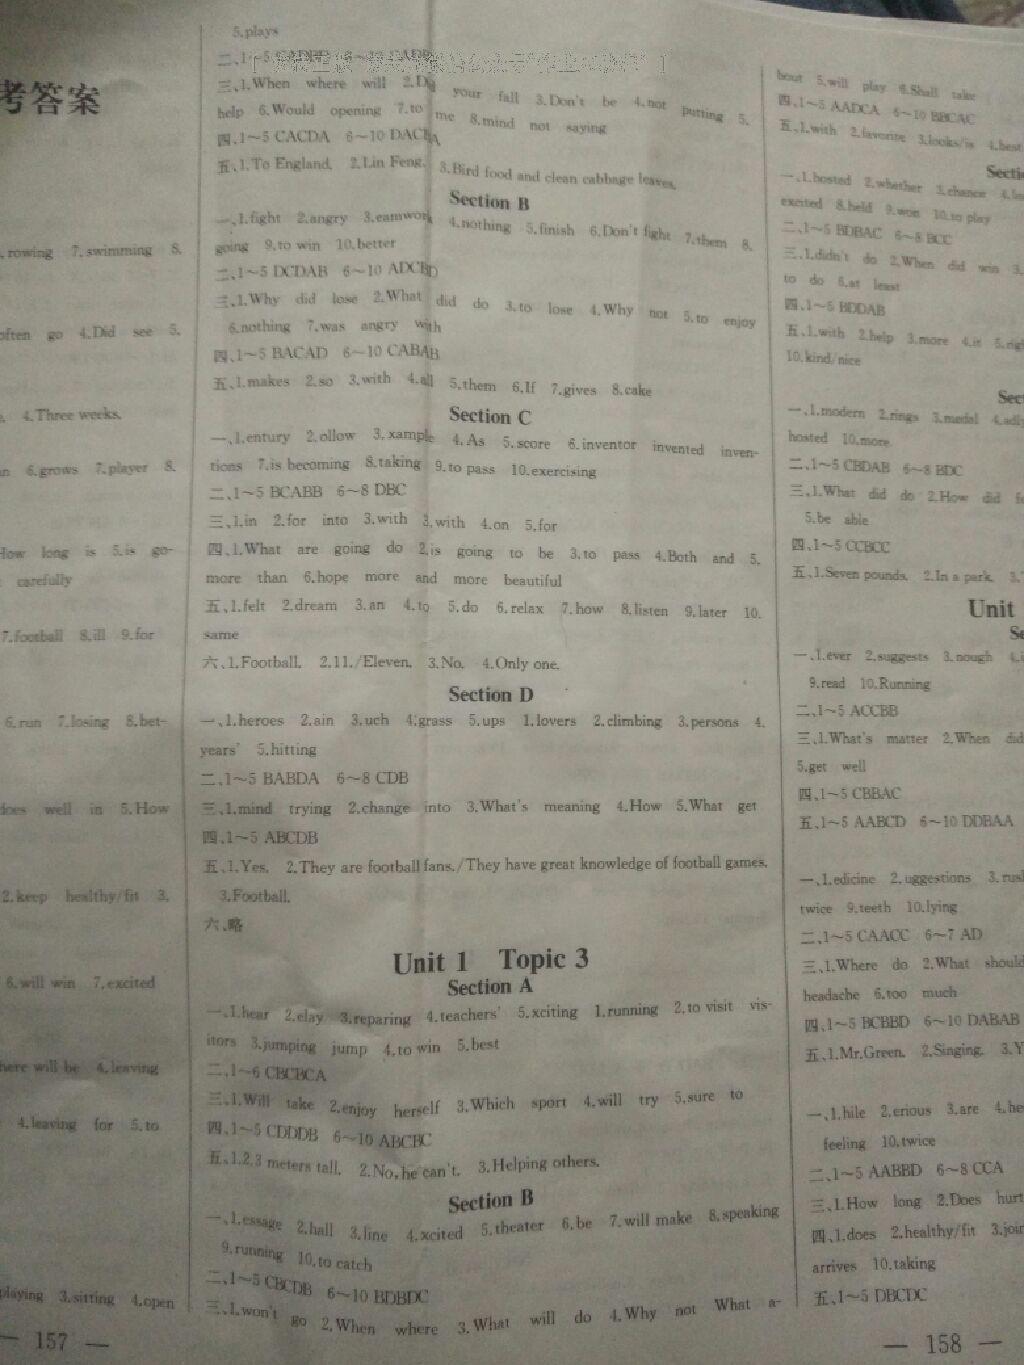 考答案
rowing 7.swimming 8.
often go 4.Did see 5.
4.Three weeks.
6.grows 7.player 8.
How long is 5.is go-
carefully
7.football 8.ill 9.for
6.run 7.losing 8.bet-
does well in 5.How
2.keep healthy/fit 3.
6.will win 7.excited
here will be 4.leaving
4.leaving for 5.to
playing 3.sitting 4.open
— 157 —
5.plays
三、1.When where will 2.Do your fall 3.Don't be 4.not putting 5.
help 6.Would opening 7.to me 8.mind not saying
四、1～5 CACDA 6～10 DACBA
五、1.To England. 2.Lin Feng. 3.Bird food and clean cabbage leaves.
Section B
一、1.fight 2.angry 3.eamwork 4.nothing 5.finish 6.Don't fight 7.them 8.
going 9.to win 10.better
二、1～5 DCDAB 6～10 ADCBD
三、1.Why did lose 2.What did do 3.to lose 4.Why not 5.to enjoy
6.nothing 7.was angry with
四、1～5 BACAD 6～10 CABAB
五、1.makes 2.so 3.with 4.all 5.them 6.If 7.gives 8.cake
Section C
一、1.entury 2.ollow 3.xample 4.As 5.score 6.inventor invented inven-
tions 7.is becoming 8.taking 9.to pass 10.exercising
二、1～5 BCABB 6～8 DBC
三、1.in 2.for into 3.with 3.with 4.on 5.for
四、1.What are going do 2.is going to be 3.to pass 4.Both and 5.
more than 6.hope more and more beautiful
五、1.felt 2.dream 3.an 4.to 5.do 6.relax 7.how 8.listen 9.later 10.
same
六、1.Football. 2.11./Eleven. 3.No. 4.Only one.
Section D
一、1.heroes 2.ain 3.uch 4.grass 5.ups 1.lovers 2.climbing 3.persons 4.
years' 5.hitting
二、1～5 BABDA 6～8 CDB
三、1.mind trying 2.change into 3.What's meaning 4.How 5.What get
四、1～5 ABCDB
五、1.Yes. 2.They are football fans./They have great knowledge of football games.
3.Football.
六、略
Unit 1 Topic 3
Section A
一、1.hear 2.elay 3.reparing 4.teachers' 5.xciting 1.running 2.to visit vis-
itors 3.jumping jump 4.to win 5.best
二、1～6 CBCBCA
三、1.Will take 2.enjoy herself 3.Which sport 4.will try 5.sure to
四、1～5 CDDDB 6～10 ABCBC
五、1.2.3 meters tall. 2.No, he can't. 3.Helping others.
Section B
一、1.essage 2.hall 3.line 4.xcited 5.theater 6.be 7.will make 8.speaking
9.running 10.to catch
二、1～5 CBCDB 6～10 BDBDC
三、1.won't go 2.When where 3.What will do 4.Why not What a-
bout 5.will play 6.Shall take
四、1～5 AADCA 6～10 BBCAC
五、1.with 2.favorite 3.looks/is 4.best
一、1.hosted 2.whether 3.chance
excited 8.held 9.won 10.to play
二、1～5 BDBAC 6～8 BCC
三、1.didn't do 2.When did win 3.
to do 6.at least
四、1～5 BDDAB
五、1.with 2.help 3.more 4.it
10.kind/nice
一、1.modern 2.rings 3.medal
hosted 10.more
二、1～5 CBDAB 6～8 BDC
三、1.What did do 2.How did
5.be able
四、1～5 CCBCC
五、1.Seven pounds. 2.In a park. 3.
Unit
一、1.ever 2.suggests 3.nough
9.read 10.Running
二、1～5 ACCBB
三、1.What's matter 2.When did
5.get well
四、1～5 CBBAC
五、1～5 AABCD 6～10 DDBAA
一、1.edicine 2.uggestions 3.
twice 9.teeth 10.lying
二、1～5 CAACC 6～7 AD
三、1.Where do 2.What should
headache 6.too much
四、1～5 BCBBD 6～10 DABAB
五、1.Mr.Green. 2.Singing. 3.
一、1.hile 2.erious 3.are 4.
feeling 10.twice
二、1～5 AABBD 6～8 CCA
三、1.How long 2.Does hurt
四、1.does 2.healthy/fit 3.
arrives 10.taking
五、1～5 DBCDC
— 158 —